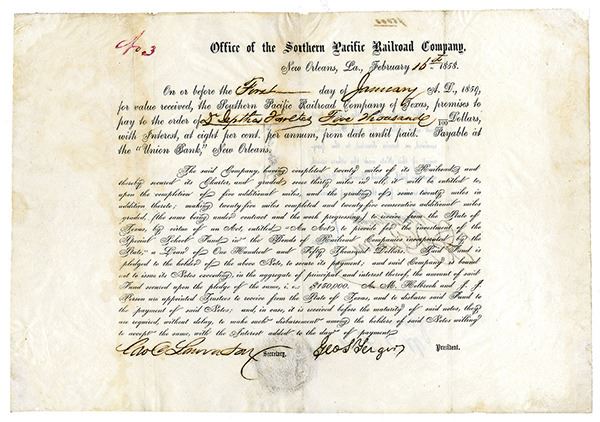 No 3
Office of the Southern Pacific Railroad Company,
New Orleans, La., February 16th 1858.
On or before the First day of January A. D., 1859,
for value received, the Southern Pacific Railroad Company of Texas, promises to
pay to the order of Jeptha Fowlkes Five thousand 100 Dollars,
with Interest, at eight per cent. per annum, from date until paid. Payable at
the "Union Bank," New Orleans.
The said Company, having completed twenty miles of its Railroad, and
thereby secured its Charter, and graded some thirty miles in all, it will be entitled to,
upon the completion of five additional miles, and the grading of some twenty miles in
addition thereto; making twenty-five miles completed and twenty-five consecutive additional miles
graded, (the same being under contract and the work progressing,) to receive from the State of
Texas, by virtue of an Act, entitled "An Act to provide for the investment of the
Special School Fund in the Bonds of Railroad Companies incorporated by the
State," a Loan of One Hundred and Fifty Thousand Dollars. Said Fund is
pledged to the holder of the above Note, to secure its payment, and said Company is bound
not to issue its Notes exceeding, in the aggregate of principal and interest thereof, the amount of said
Fund secured upon the pledge of the same, i. e. $150,000. An M. Holbrook and J. J.
Person are appointed Trustees to receive from the State of Texas, and to disburse said Fund to
the payment of said Notes; and, in case, it is received before the maturity of said notes, they
are required, without delay, to make such disbursement among the holders of said Notes willing
to accept the same, with the Interest added to the day of payment.
Secretary. President.